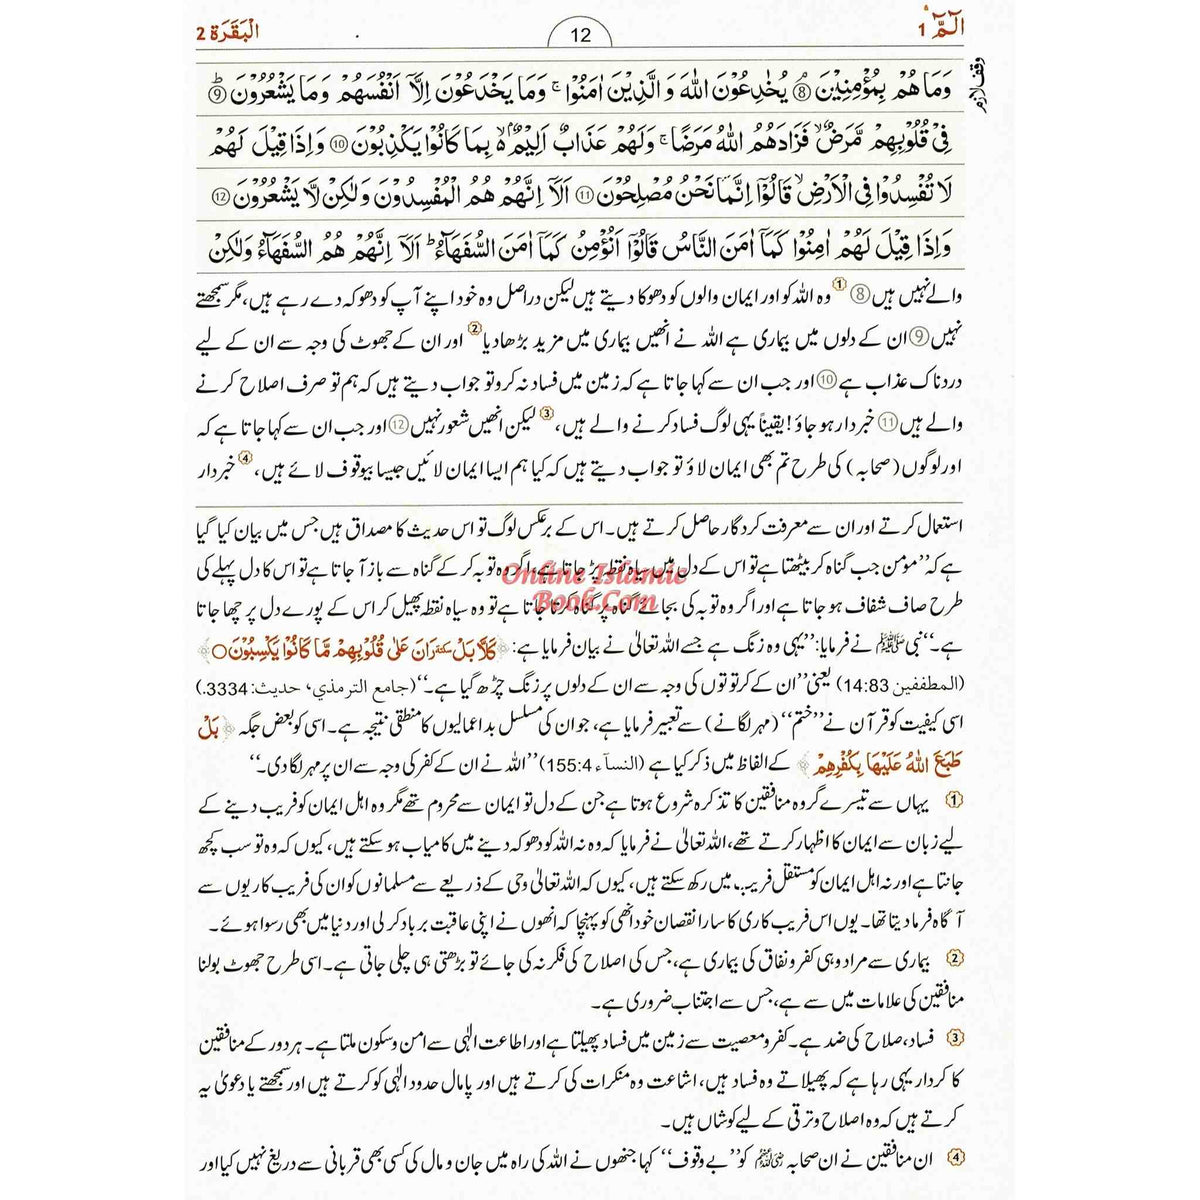 الٓمّٓ 1
12
الْبَقَرَة 2
وقف لازم
وَمَا هُمْ بِمُؤْمِنِيْنَ ۘ 8 يُخٰدِعُوْنَ اللّٰهَ وَ الَّذِيْنَ اٰمَنُوْا ۚ وَمَا يَخْدَعُوْنَ اِلَّآ اَنْفُسَهُمْ وَمَا يَشْعُرُوْنَ ۭ 9
فِيْ قُلُوْبِهِمْ مَّرَضٌ ۙ فَزَادَهُمُ اللّٰهُ مَرَضًا ۚ وَلَهُمْ عَذَابٌ اَلِيْمٌۢ ڏ بِمَا كَانُوْا يَكْذِبُوْنَ 10 وَاِذَا قِيْلَ لَهُمْ
لَا تُفْسِدُوْا فِي الْاَرْضِ ۙ قَالُوْٓا اِنَّمَا نَحْنُ مُصْلِحُوْنَ 11 اَلَآ اِنَّھُمْ ھُمُ الْمُفْسِدُوْنَ وَلٰكِنْ لَّا يَشْعُرُوْنَ 12
وَاِذَا قِيْلَ لَھُمْ اٰمِنُوْا كَمَآ اٰمَنَ النَّاسُ قَالُوْٓا اَنُؤْمِنُ كَمَآ اٰمَنَ السُّفَهَاۗءُ ۭ اَلَآ اِنَّھُمْ ھُمُ السُّفَهَاۗءُ وَلٰكِنْ
والے نہیں ہیں 8 وہ اللہ کو اور ایمان والوں کو دھوکا دیتے ہیں لیکن دراصل وہ خود اپنے آپ کو دھوکہ دے رہے ہیں، مگر سمجھتے
نہیں 9 ان کے دلوں میں بیماری ہے اللہ نے انھیں بیماری میں مزید بڑھا دیا 2 اور ان کے جھوٹ کی وجہ سے ان کے لیے
دردناک عذاب ہے 10 اور جب ان سے کہا جاتا ہے کہ زمین میں فساد نہ کرو تو جواب دیتے ہیں کہ ہم تو صرف اصلاح کرنے
والے ہیں 11 خبردار ہو جاؤ! یقیناً یہی لوگ فساد کرنے والے ہیں، 3 لیکن انھیں شعور نہیں 12 اور جب ان سے کہا جاتا ہے کہ
اور لوگوں (صحابہ) کی طرح تم بھی ایمان لاؤ تو جواب دیتے ہیں کہ کیا ہم ایسا ایمان لائیں جیسا بیوقوف لائے ہیں، 4 خبردار
استعمال کرتے اور ان سے معرفت کردگار حاصل کرتے ہیں۔ اس کے برعکس لوگ تو اس حدیث کا مصداق ہیں جس میں بیان کیا گیا
ہے کہ ’’مومن جب گناہ کر بیٹھتا ہے تو اس کے دل میں سیاہ نقطہ پڑ جاتا ہے، اگر وہ توبہ کر کے گناہ سے باز آ جاتا ہے تو اس کا دل پہلے کی
طرح صاف شفاف ہو جاتا ہے اور اگر وہ توبہ کی بجائے گناہ پر گناہ کرتا جاتا ہے تو وہ سیاہ نقطہ پھیل کر اس کے پورے دل پر چھا جاتا
ہے۔‘‘ نبی ﷺ نے فرمایا: ’’یہی وہ زنگ ہے جسے اللہ تعالیٰ نے بیان فرمایا ہے: ﴿كَلَّا بَلْ سكتة رَانَ عَلٰي قُلُوْبِهِمْ مَّا كَانُوْا يَكْسِبُوْنَ﴾
(المطففین 14:83) یعنی ’’ان کے کرتوتوں کی وجہ سے ان کے دلوں پر زنگ چڑھ گیا ہے۔‘‘ (جامع الترمذي، حديث: 3334.)
اسی کیفیت کو قرآن نے ’’ختم‘‘ (مہر لگانے) سے تعبیر فرمایا ہے، جو ان کی مسلسل بداعمالیوں کا منطقی نتیجہ ہے۔ اسی کو بعض جگہ ﴿بَلْ
طَبَعَ اللّٰهُ عَلَيْهَا بِكُفْرِهِمْ﴾ کے الفاظ میں ذکر کیا ہے (النسآء 155:4) ’’اللہ نے ان کے کفر کی وجہ سے ان پر مہر لگا دی۔‘‘
1 یہاں سے تیسرے گروہ منافقین کا تذکرہ شروع ہوتا ہے جن کے دل تو ایمان سے محروم تھے مگر وہ اہل ایمان کو فریب دینے کے
لیے زبان سے ایمان کا اظہار کرتے تھے، اللہ تعالیٰ نے فرمایا کہ وہ نہ اللہ کو دھوکہ دینے میں کامیاب ہو سکتے ہیں، کیوں کہ وہ تو سب کچھ
جانتا ہے اور نہ اہل ایمان کو مستقل فریب میں رکھ سکتے ہیں، کیوں کہ اللہ تعالیٰ وحی کے ذریعے سے مسلمانوں کو ان کی فریب کاریوں سے
آگاہ فرما دیتا تھا۔ یوں اس فریب کاری کا سارا نقصان خود انھی کو پہنچا کہ انھوں نے اپنی عاقبت برباد کر لی اور دنیا میں بھی رسوا ہوئے۔
2 بیماری سے مراد وہی کفر و نفاق کی بیماری ہے، جس کی اصلاح کی فکر نہ کی جائے تو بڑھتی ہی چلی جاتی ہے۔ اسی طرح جھوٹ بولنا
منافقین کی علامات میں سے ہے، جس سے اجتناب ضروری ہے۔
3 فساد، صلاح کی ضد ہے۔ کفر و معصیت سے زمین میں فساد پھیلتا ہے اور اطاعت الٰہی سے امن و سکون ملتا ہے۔ ہر دور کے منافقین
کا کردار یہی رہا ہے کہ پھیلاتے وہ فساد ہیں، اشاعت وہ منکرات کی کرتے ہیں اور پامال حدود الٰہی کو کرتے ہیں اور سمجھتے یا دعویٰ یہ
کرتے ہیں کہ وہ اصلاح و ترقی کے لیے کوشاں ہیں۔
4 ان منافقین نے ان صحابہ رضی اللہ عنہم کو ’’بے وقوف‘‘ کہا جنھوں نے اللہ کی راہ میں جان و مال کی کسی بھی قربانی سے دریغ نہیں کیا اور
Online Islamic
Book.Com